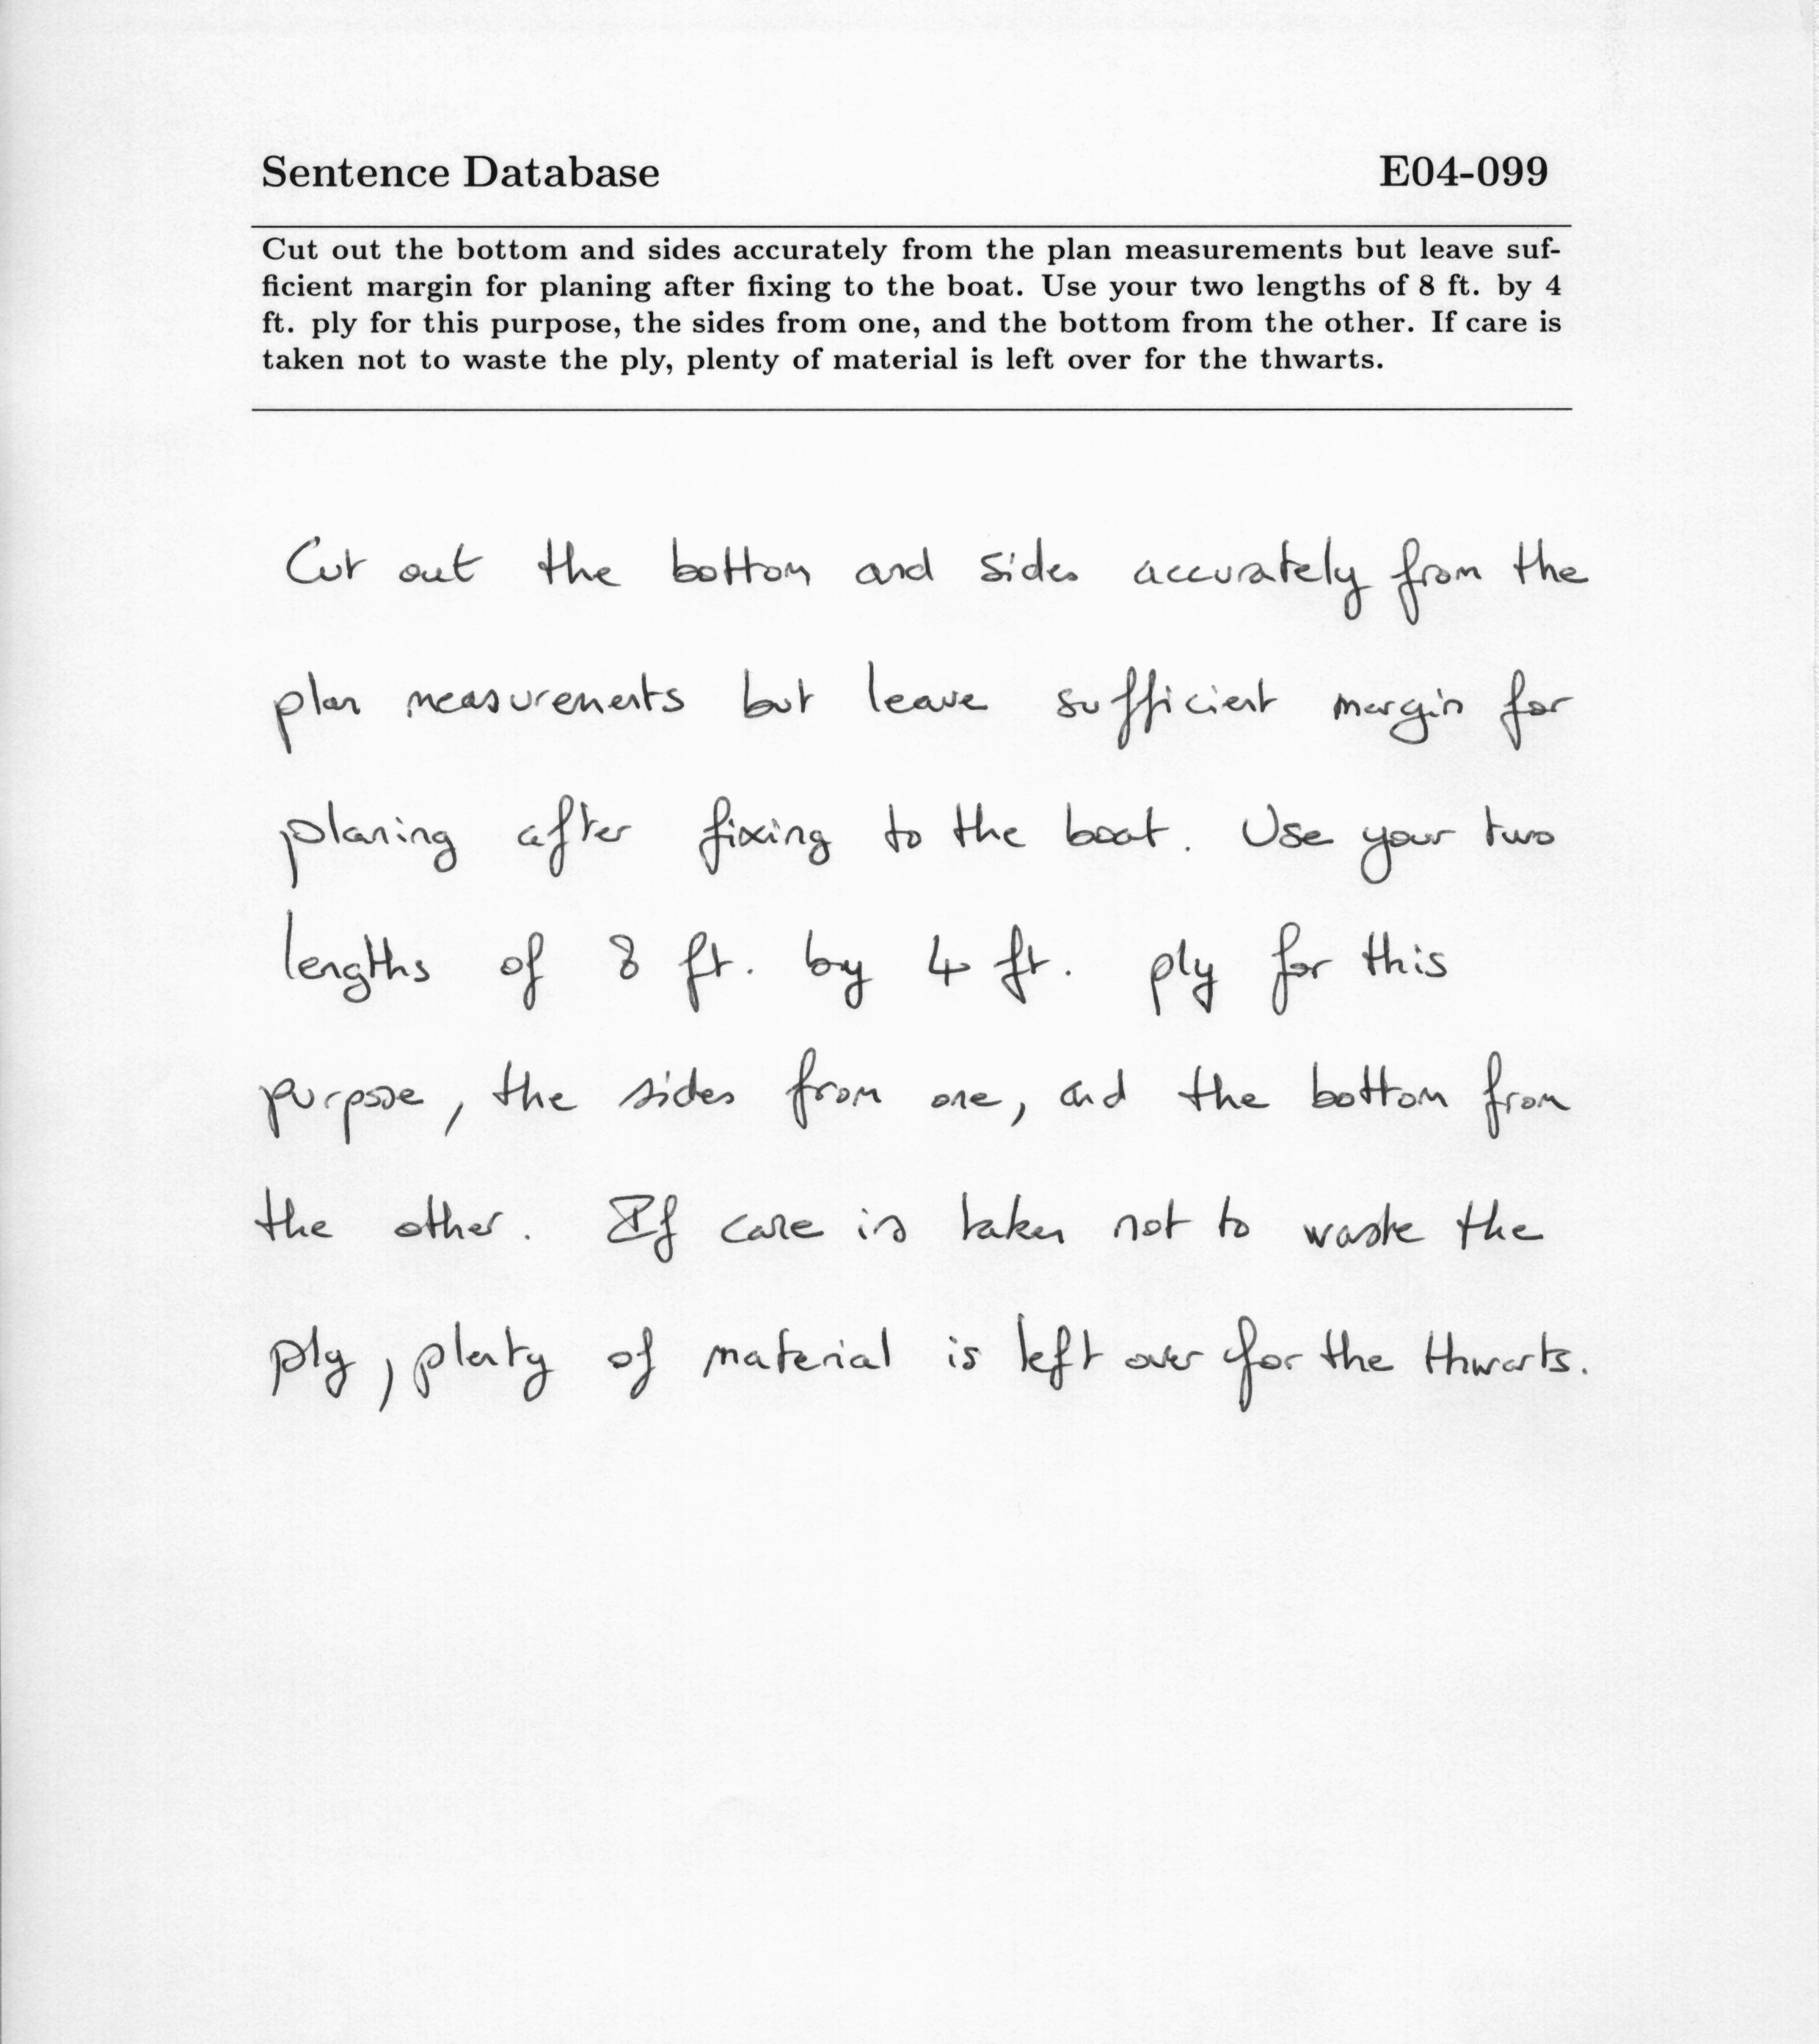 Sentence Database E04-099
Cut out the bottom and sides accurately from the plan measurements but leave suf-
ficient margin for planing after fixing to the boat. Use your two lengths of 8 ft. by 4
ft. ply for this purpose, the sides from one, and the bottom from the other. If care is
taken not to waste the ply, plenty of material is left over for the thwarts.
Cut out the bottom and sides accurately from the
plan measurements but leave sufficient margin for
planing after fixing to the boat. Use your two
lengths of 8 ft. by 4 ft. ply for this
purpose, the sides from one, and the bottom from
the other. If care is taken not to waste the
ply, plenty of material is left over for the thwarts.